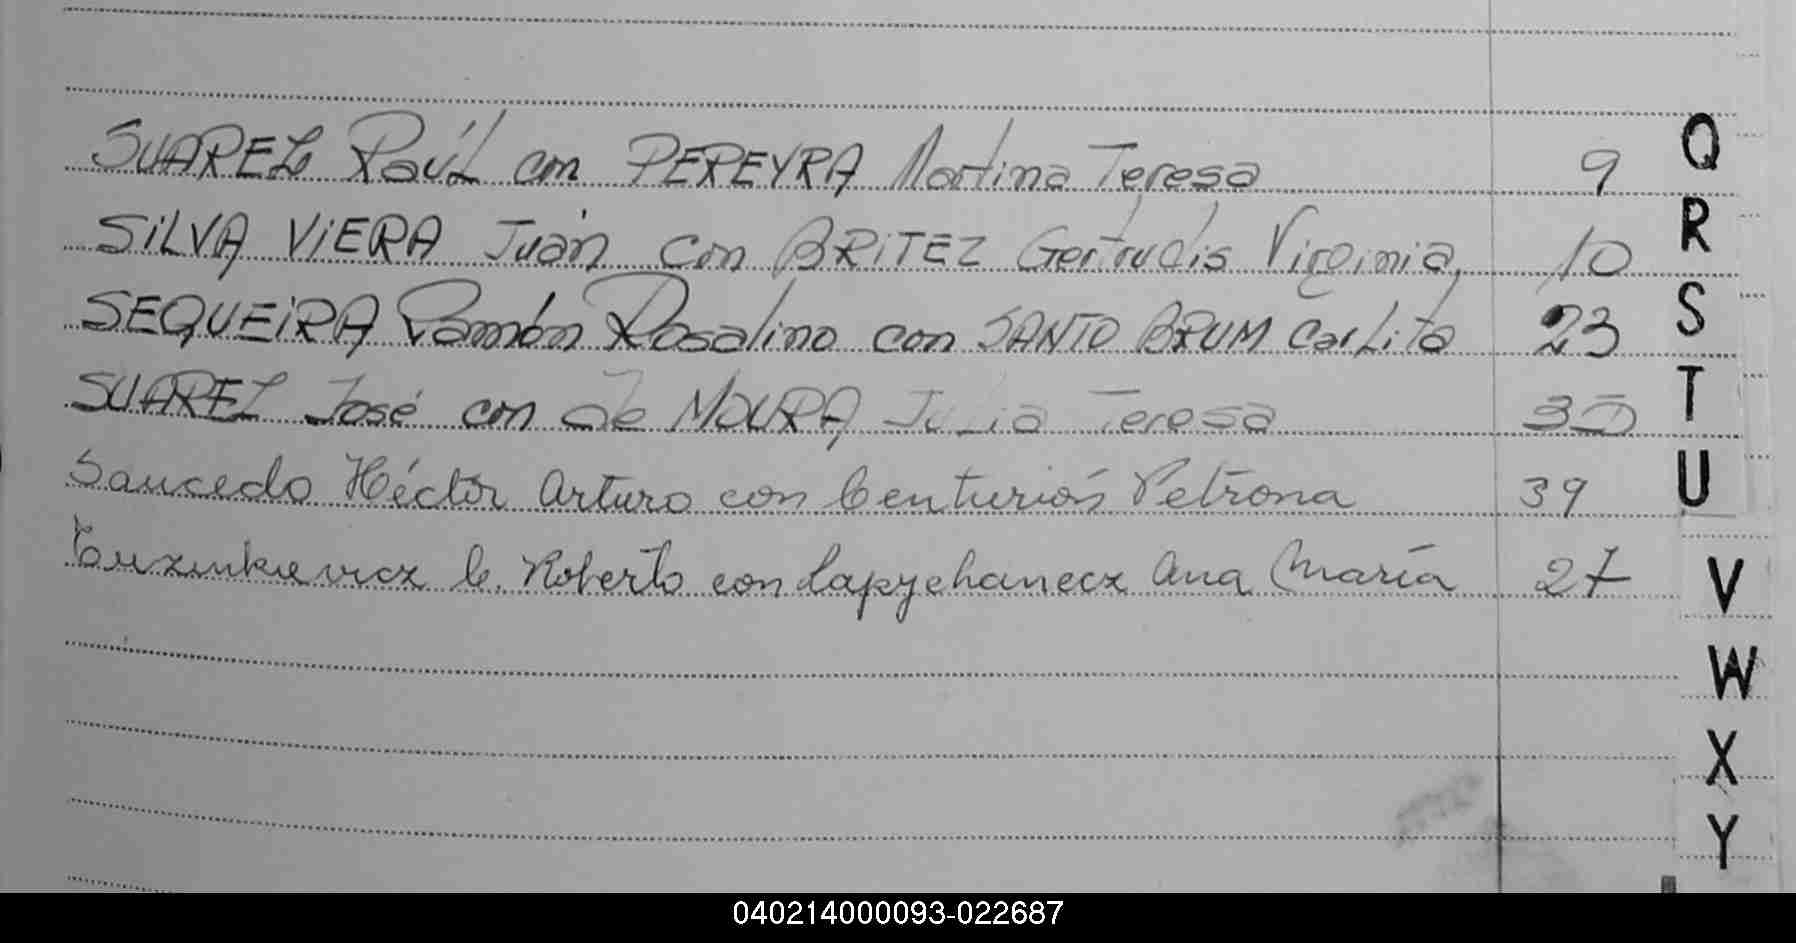 SUAREZ Raúl con PEREYRA Martina Teresa 9
SILVA VIERA Juan con BRITEZ Gertrudis Virginia 10
SEQUEIRA Ramón Rosalino con SANTO BRUM Carlito 23
SUAREZ José con de MOURA Julia Teresa 35
Saucedo Héctor Arturo con Centurión Petrona 39
C. Roberto con Ana María 27
Q
R
S
T
U
V
W
X
Y
040214000093-022687